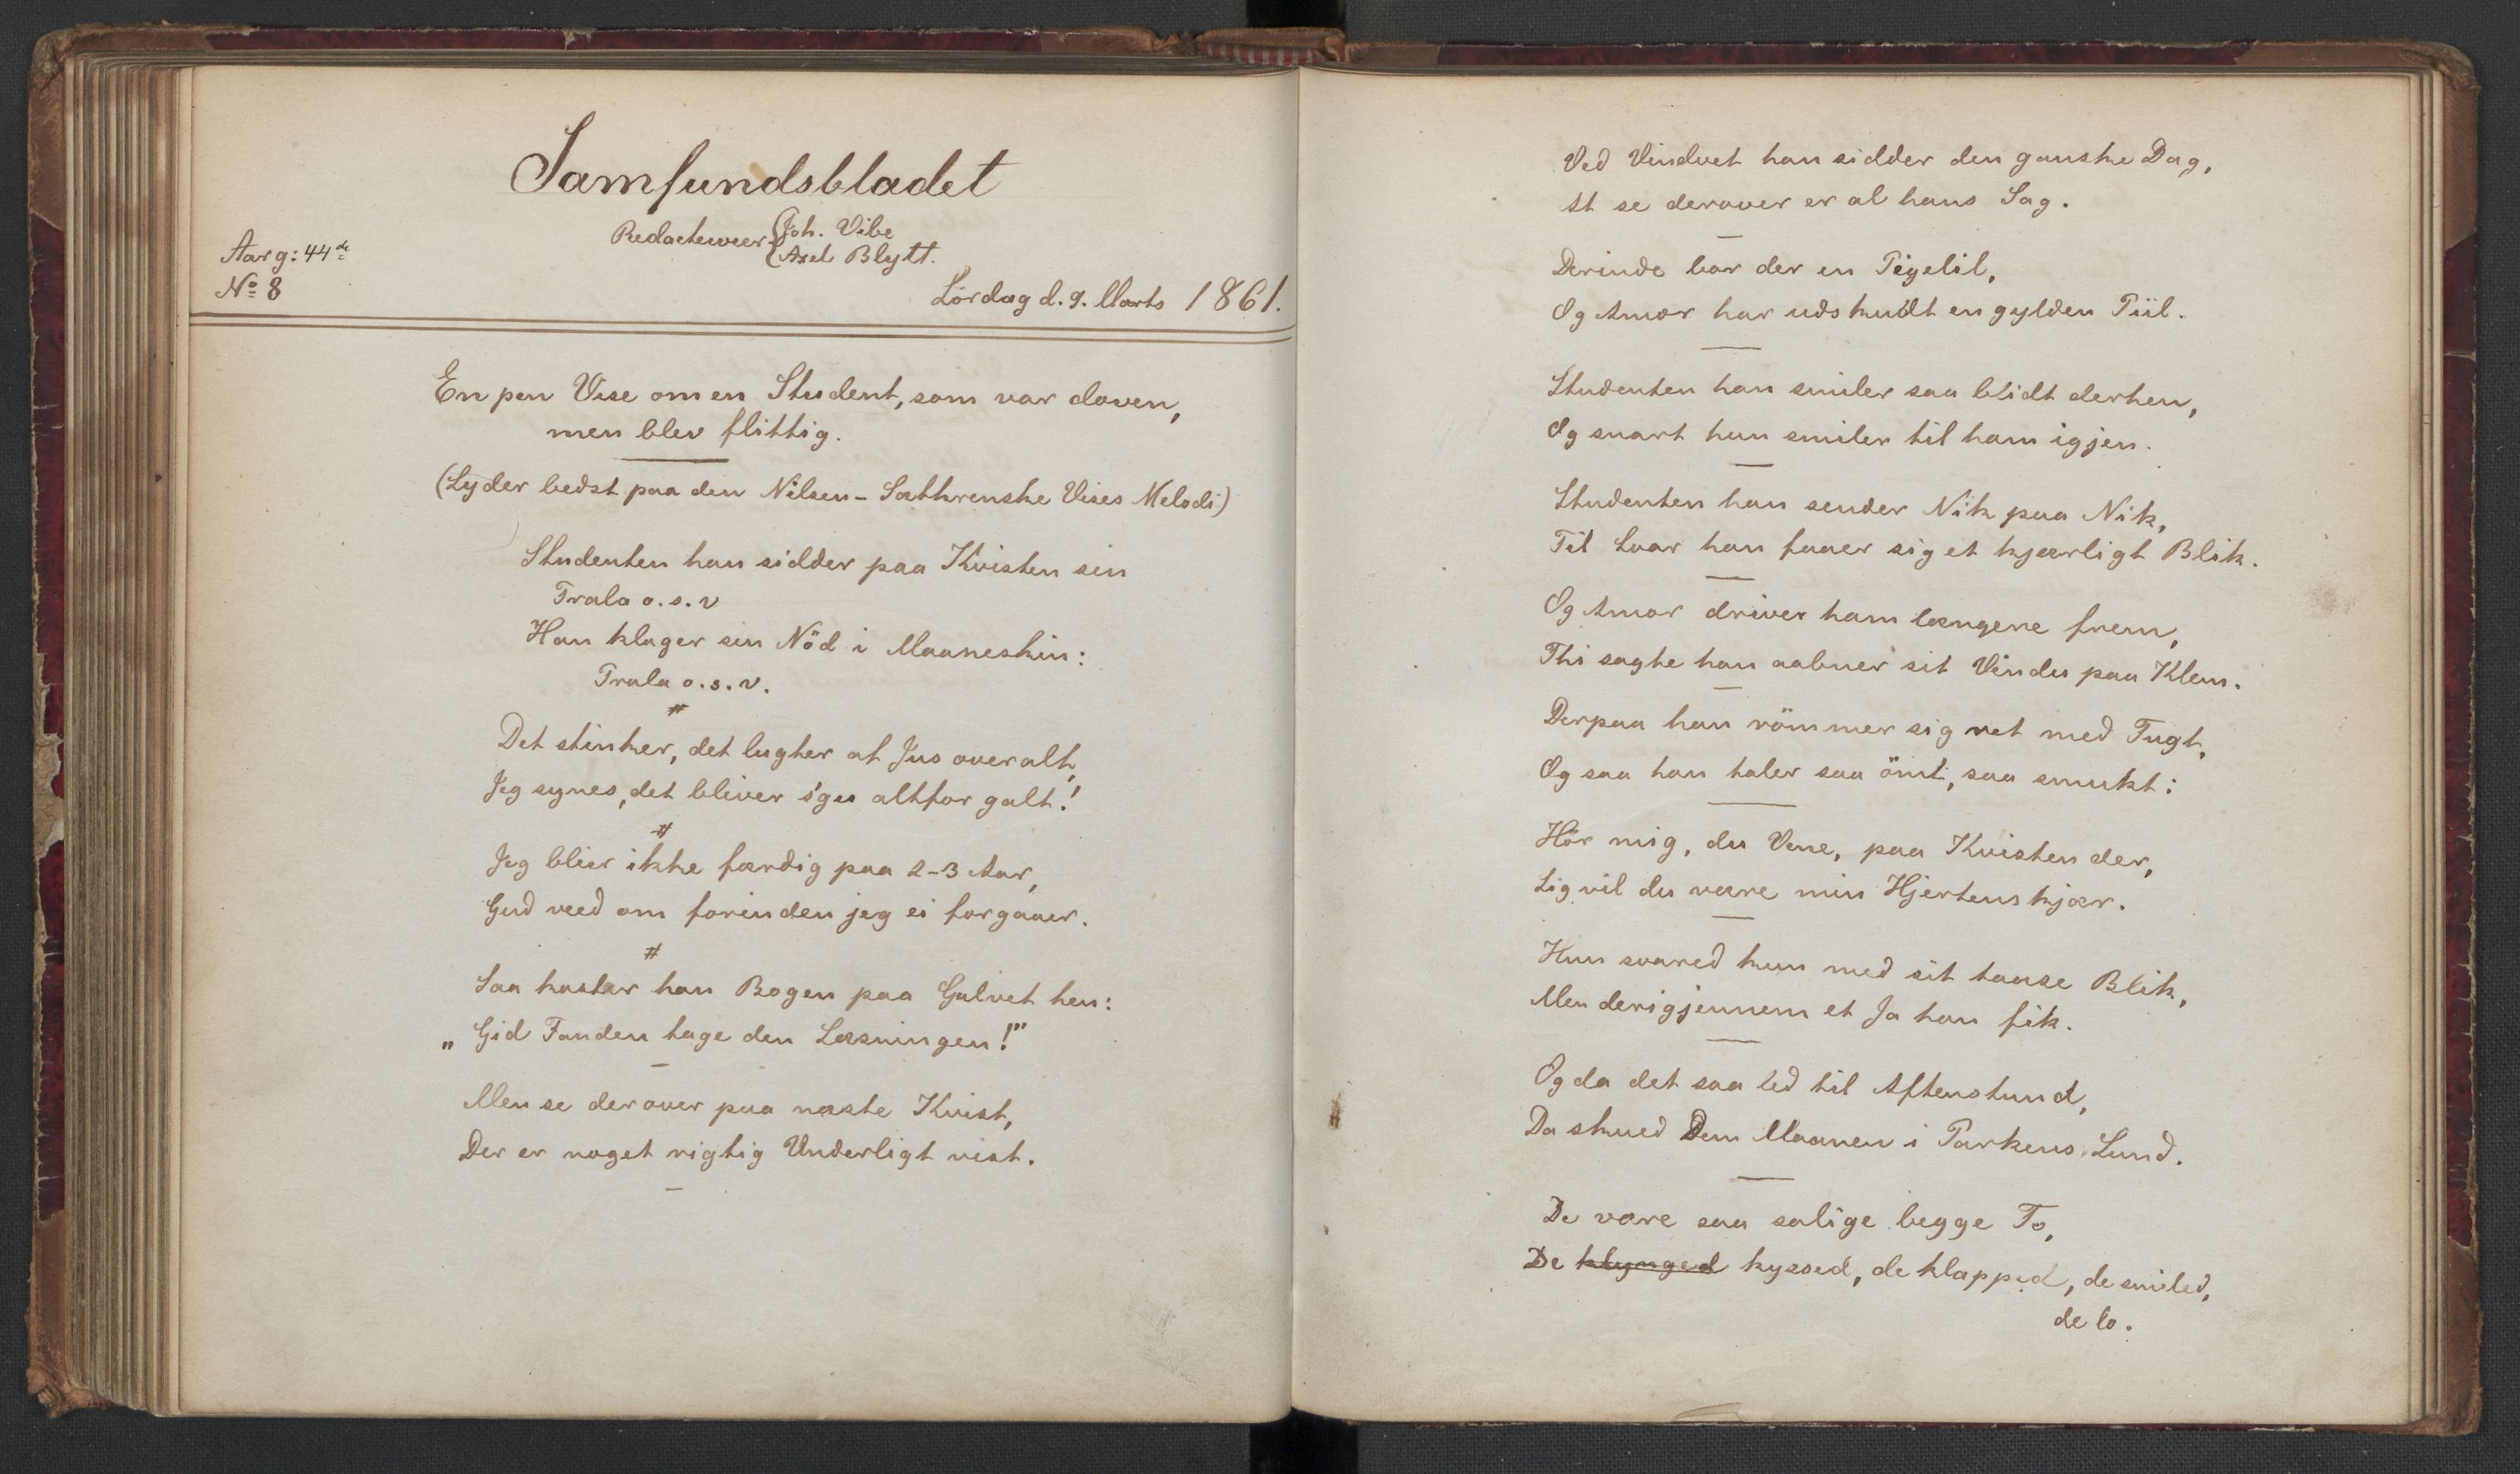 Samfundsbladet
Redacteurer {Joh. Vibe
Axel Blytt.
Aarg: 44de
No 8
Lördag d. 9. Marts 1861.
En pen Vise om en Student, som var doven,
men blev flittig.
(Lyder bedst paa den Nilsen-Sæthrenske Vises Melodi)
Studenten han sidder paa Kvisten sin
Trala o.s.v
Han klager sin Nöd i Maaneskin:
Trala o.s.v.
#
Det stinker, det lugter af Jus overalt,
Jeg synes, det bliver s'gu altfor galt!
#
Jeg blier ikke færdig paa 2-3 Aar,
Gud veed om forinden jeg ei forgaaer.
#
Saa kaster han Bogen paa Gulvet hen:
„Gid Fanden tage den Læsningen!"
Men se derover paa næste Kvist,
Der er noget rigtig Underligt vist.
Ved Vinduet han sidder den ganske Dag,
At se derover er al hans Sag.
Derinde bor der en Pigelil,
Og Amor har udskudt en gylden Piil.
Studenten han smiler saa blidt derhen,
Og snart hun smiler til ham igjen.
Studenten han sender Nik paa Nik,
Til Svar han faaer sig et kjærligt Blik.
Og Amor driver ham længere frem,
Thi sagte han aabner sit Vindu paa Klem.
Derpaa han römmer sig ret med Tugt,
Og saa han taler saa ömt, saa smukt:
Hör mig, du Vene, paa Kvisten der,
Sig vil du være min Hjertenskjær.
Hun svared kun med sit taase Blik,
Men derigjennem et Ja han fik.
Og da det saa led til Aftenstund,
Da skued Dem Maanen i Parkens Lund.
De vare saa salige begge To,
De klynged kyssed, de klapped, de smiled,
de lo.